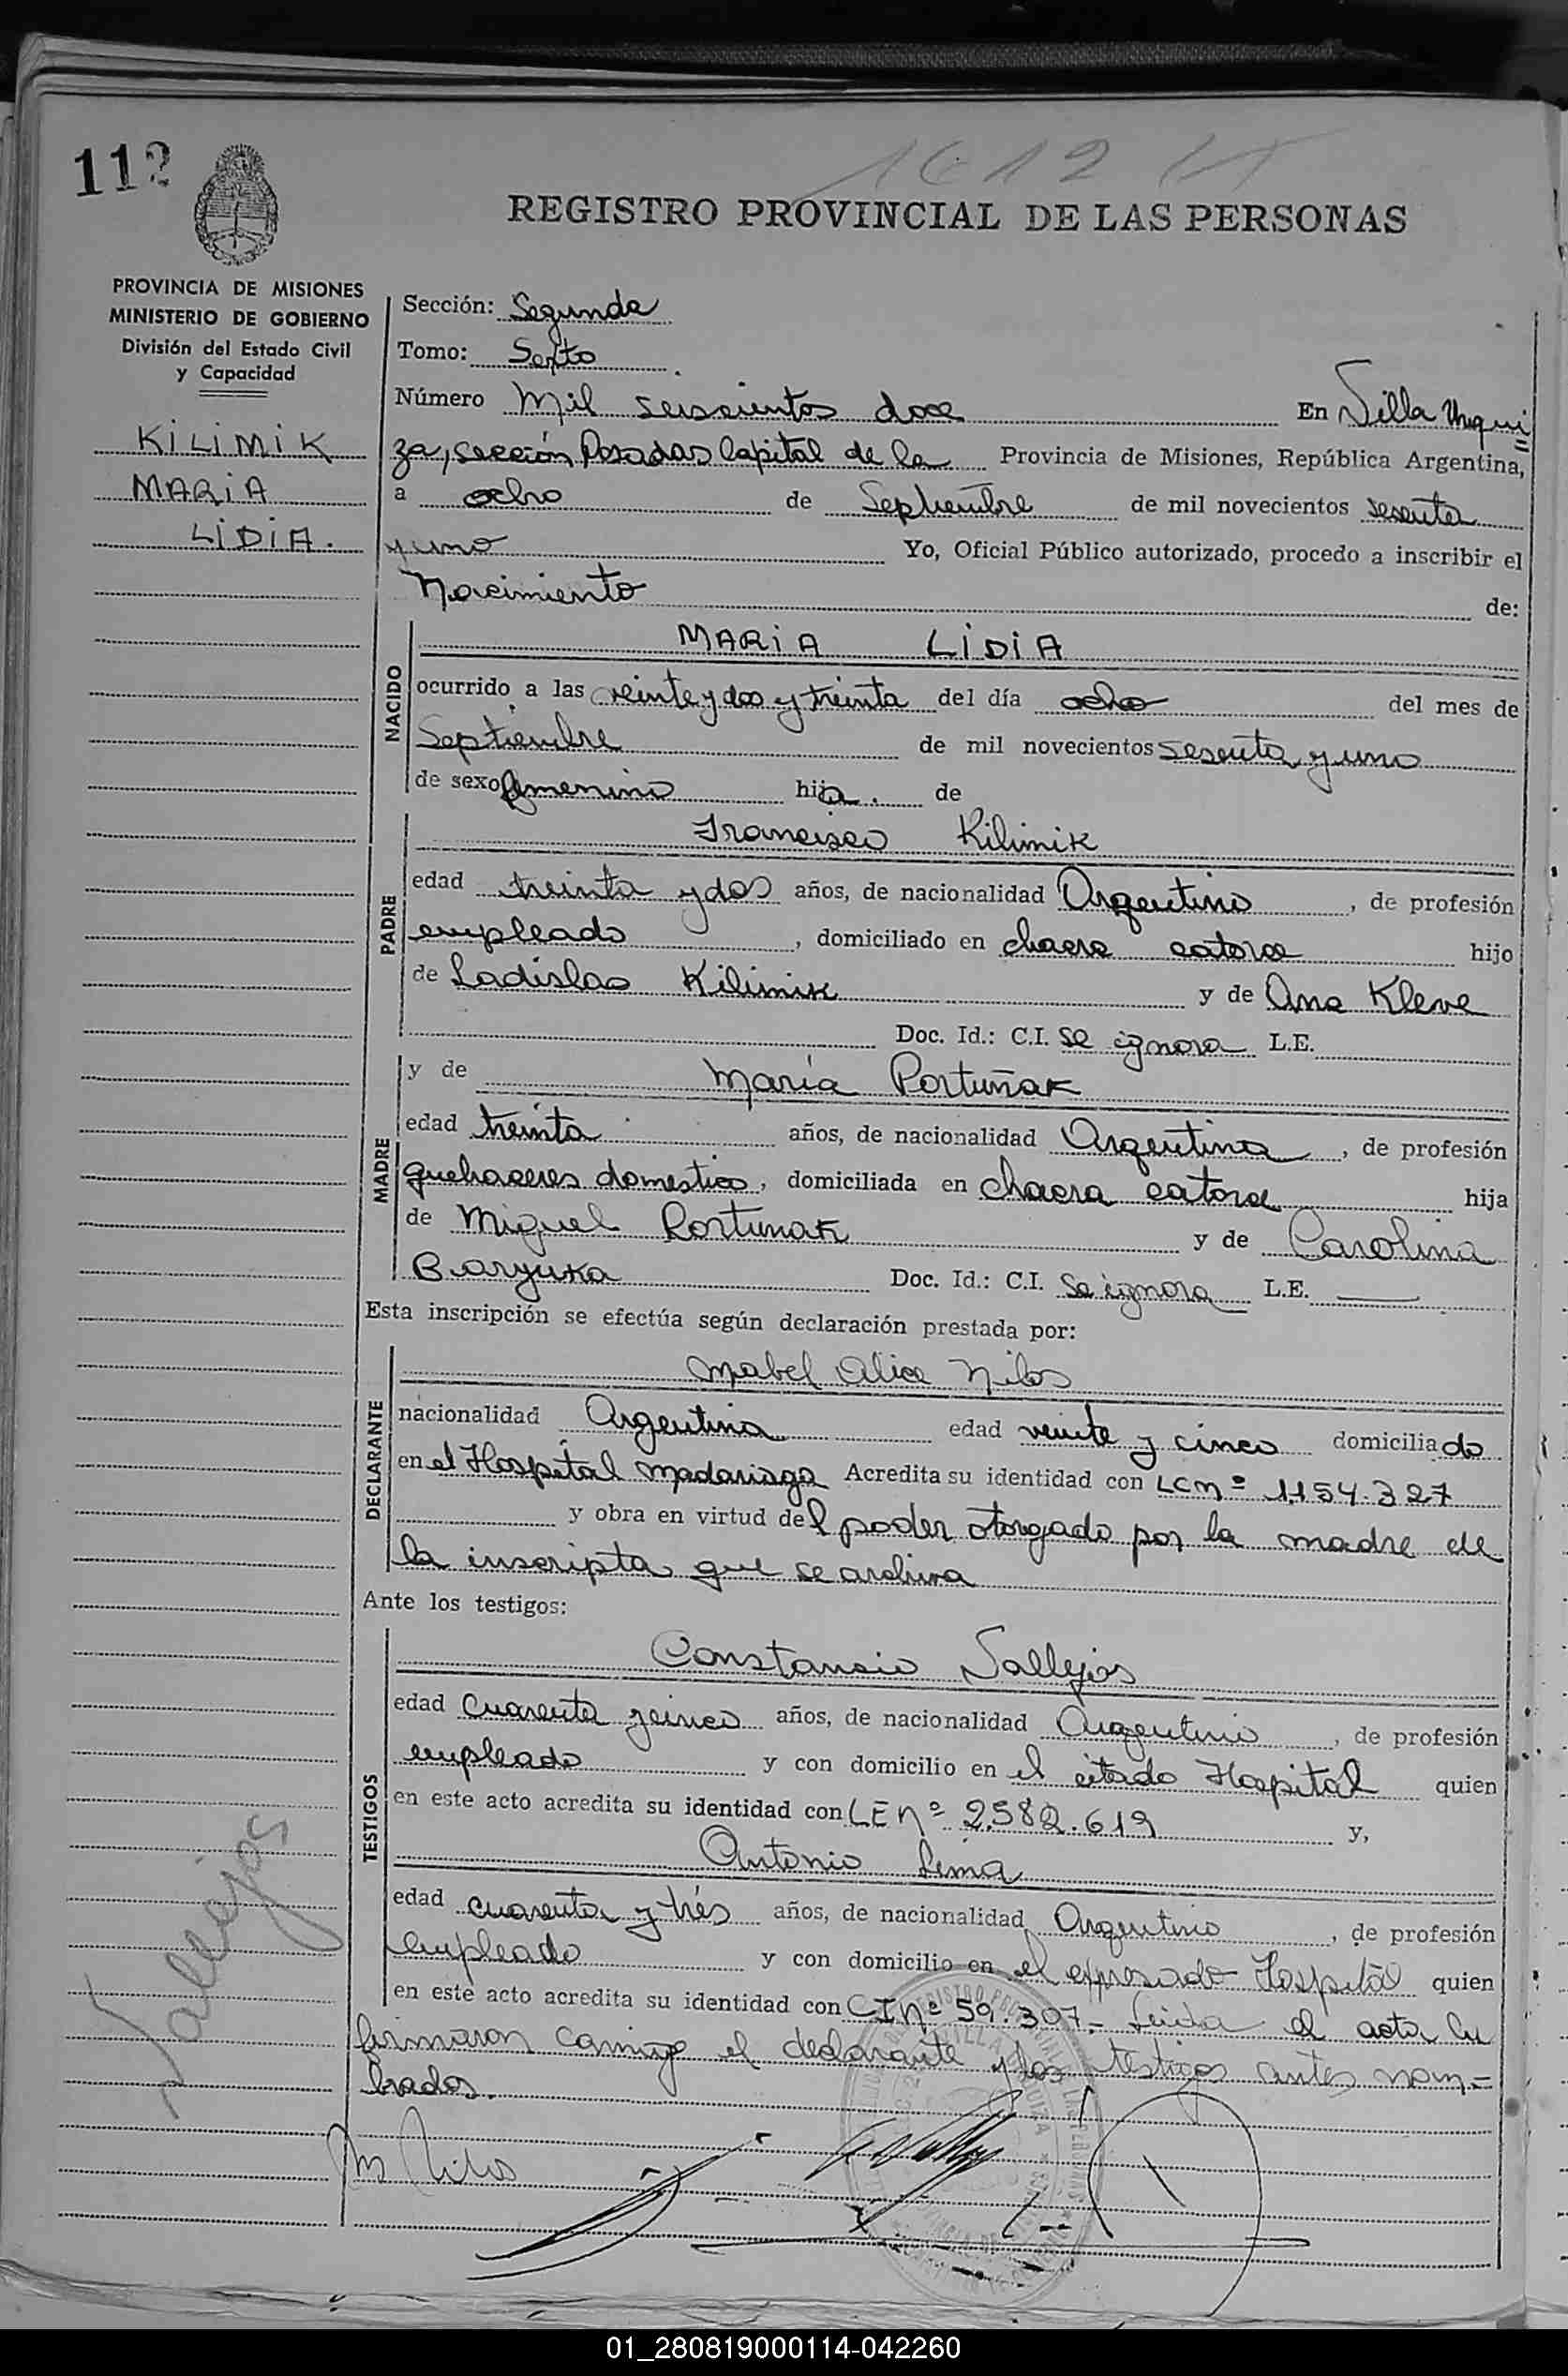 112
1612
REGISTRO PROVINCIAL DE LAS PERSONAS
PROVINCIA DE MISIONES
MINISTERIO DE GOBIERNO
División del Estado Civil
y Capacidad
KILIMIK
MARIA
LIDIA.
Sección: Segunda
Tomo: Sexto
Número Mil seiscientos doce En Villa Urqui
za, sección Posadas Capital de la Provincia de Misiones, República Argentina,
a ocho de Septiembre de mil novecientos sesenta
y uno Yo, Oficial Público autorizado, procedo a inscribir el
Nacimiento de:
NACIDO
MARIA LIDIA
ocurrido a las veinte y dos y treinta del día ocho del mes de
Septiembre de mil novecientos sesenta y uno
de sexo femenino hija. de
PADRE
Francisco Kilimik
edad treinta y dos años, de nacionalidad Argentino, de profesión
empleado, domiciliado en chacra catorce hijo
de Ladislao Kilimik y de Ana Kleve
Doc. Id.: C.I. se ignora L.E.
MADRE
y de María Portuñak
edad treinta años, de nacionalidad Argentina, de profesión
quehaceres domestico, domiciliada en chacra catorce hija
de Miguel Portunak y de Carolina
Baryuka Doc. Id.: C.I. Se ignora L.E. ——
Esta inscripción se efectúa según declaración prestada por:
DECLARANTE
Mabel Alice Nilos
nacionalidad Argentina edad veinte y cinco domiciliado
en el Hospital Madariaga Acredita su identidad con LC nº 1.154.327
y obra en virtud del poder otorgado por la madre de
la inscripta que se archiva
Ante los testigos:
TESTIGOS
Constancio Vallejos
edad cuarenta y cinco años, de nacionalidad Argentino, de profesión
empleado y con domicilio en el citado Hospital quien
en este acto acredita su identidad con LE nº 2.582.619 y,
Antonio Lima
edad cuarenta y trés años, de nacionalidad Argentino, de profesión
empleado y con domicilio en el expresado Hospital quien
en este acto acredita su identidad con CI nº 59.307.- Leida el acta la
firmaron conmigo el declarante y los testigos antes nom=
brados.
Vallejos
M Nilos
01_280819000114-042260